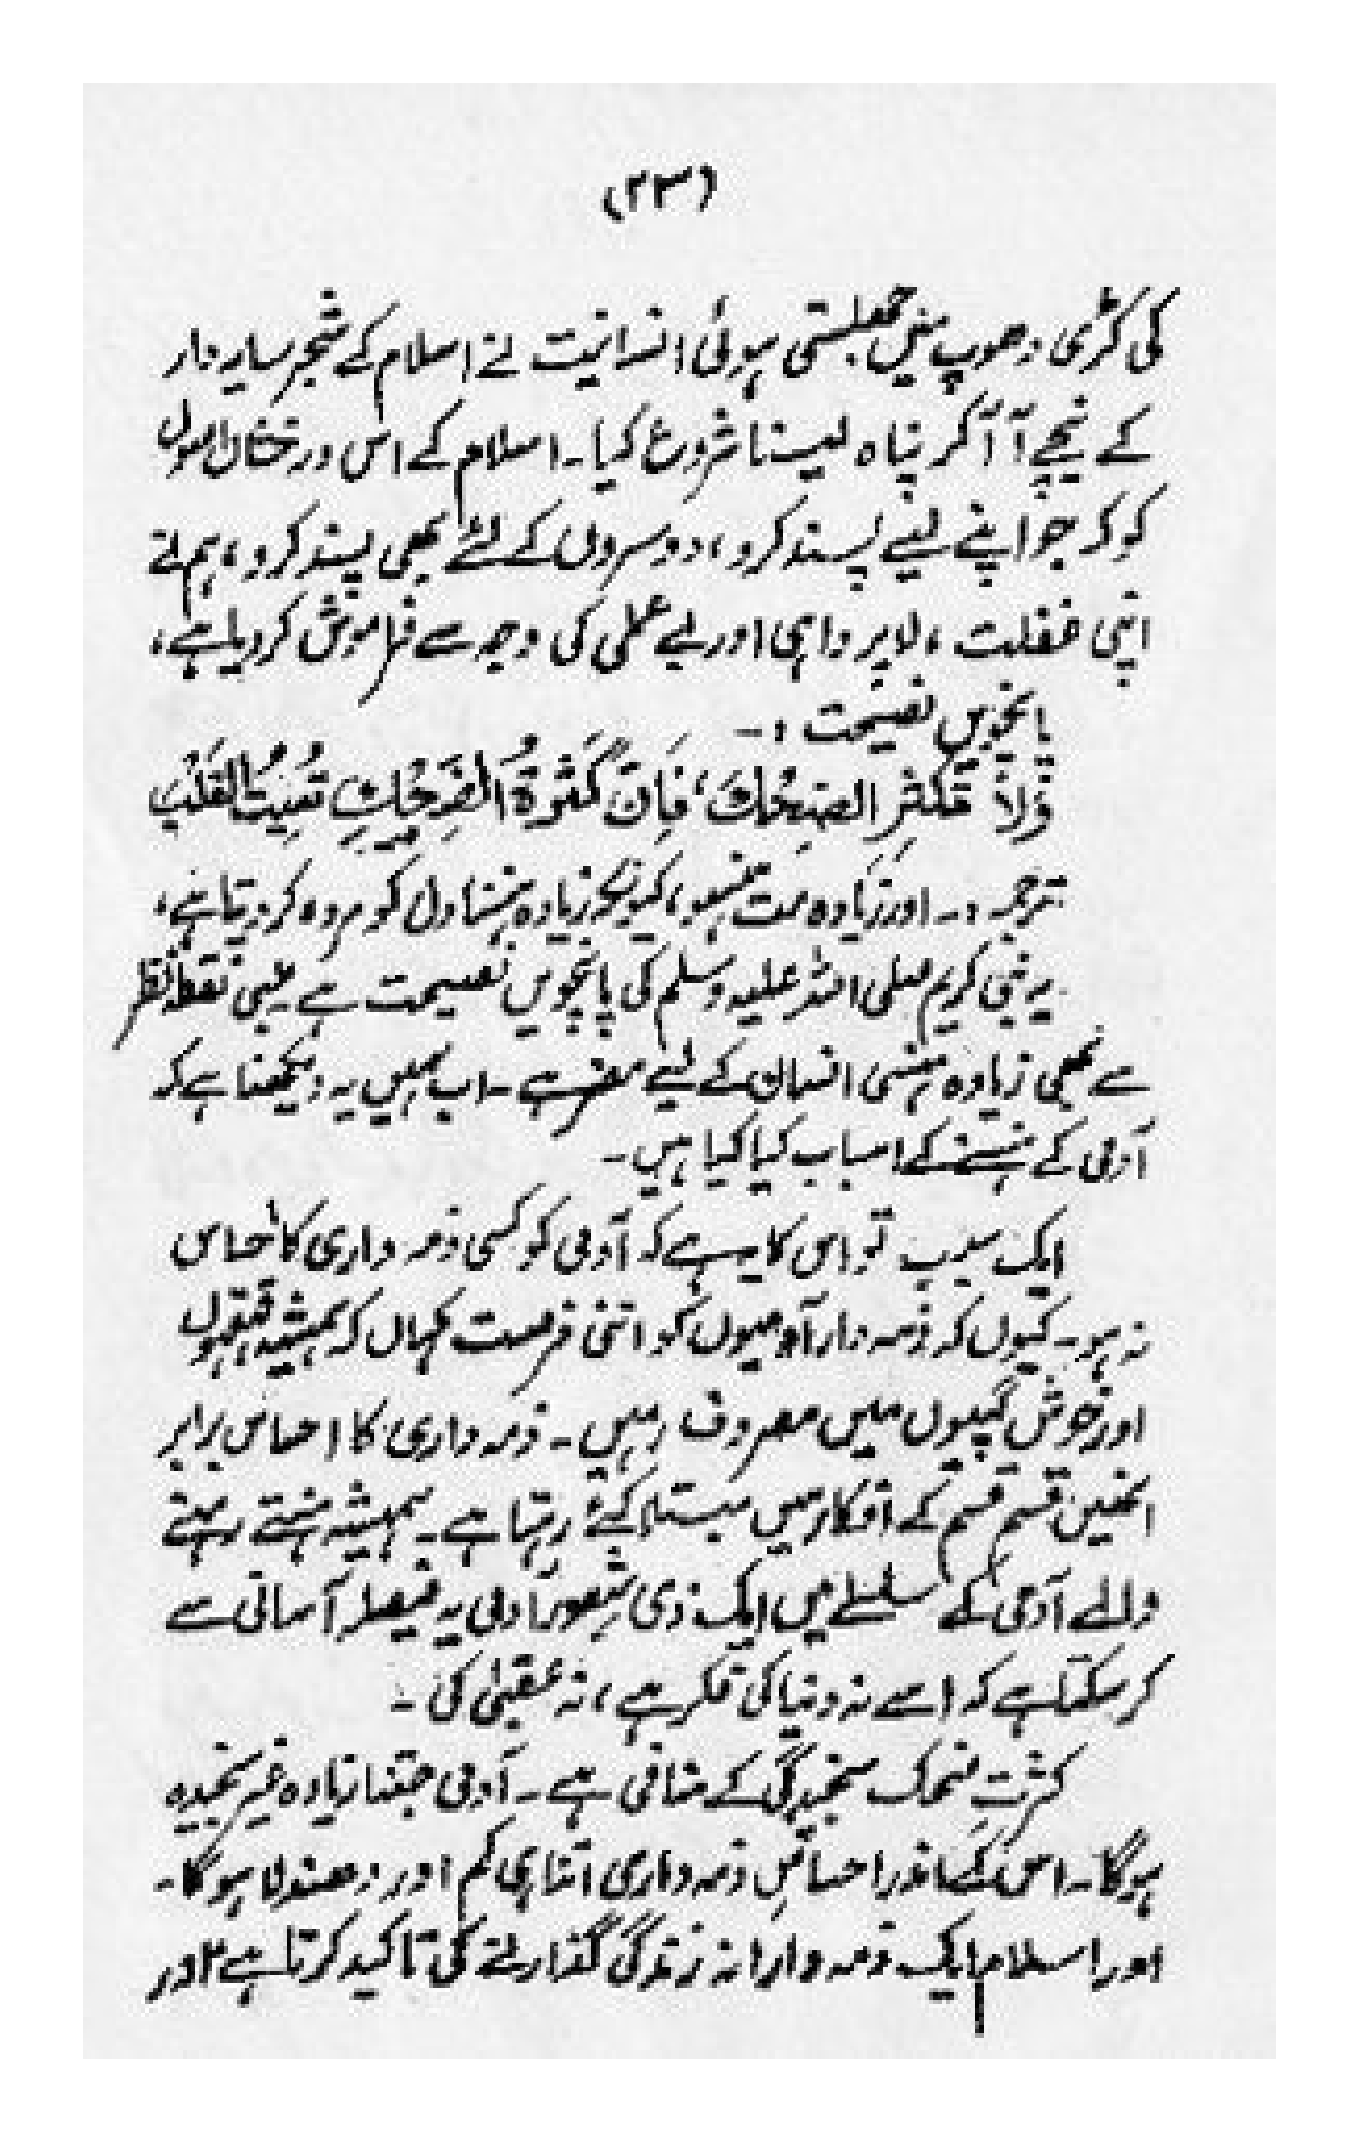 (۲۳)
کی کڑی دھوپ میں جھلستی ہوئی انسانیت نے اسلام کے شجر سایہ دار
کے نیچے آ آ کر پناہ لینا شروع کیا۔ اسلام کے اس درخشاں اصول
کو کہ جو اپنے لیے پسند کرو، دوسروں کے لئے بھی پسند کرو، ہم نے
اپنی غفلت، لاپرواہی اور بے عملی کی وجہ سے فراموش کر دیا ہے،
پانچویں نصیحت :۔
وَلَا تُكْثِرِ الضِّحْكَ، فَاِنَّ كَثْرَةَ الضِّحْكِ تُمِيْتُ الْقَلْبَ
ترجمہ :۔ اور زیادہ مت ہنسو، کیونکہ زیادہ ہنسنا دل کو مردہ کر دیتا ہے،
یہ نبی کریم صلی اللہ علیہ وسلم کی پانچویں نصیحت ہے۔ طبی نقطۂ نظر
سے بھی زیادہ ہنسی انسان کے لیے مضر ہے۔ اب ہمیں یہ دیکھنا ہے کہ
آدمی کے ہنسنے کے اسباب کیا کیا ہیں۔
ایک سبب تو اس کا یہ ہے کہ آدمی کو کسی ذمہ داری کا احساس
نہ ہو۔ کیوں کہ ذمہ دار آدمیوں کو اتنی فرصت کہاں کہ ہمیشہ قہقہوں
اور خوش گپیوں میں مصروف رہیں۔ ذمہ داری کا احساس برابر
انھیں قسم قسم کے افکار میں مبتلا کئے رہتا ہے۔ ہمیشہ ہنستے رہنے
والے آدمی کے سلسلے میں ایک ذی شعور آدمی یہ فیصلہ آسانی سے
کر سکتا ہے کہ اسے نہ دنیا کی فکر ہے، نہ عقبیٰ کی۔
کثرتِ ضحک سنجیدگی کے منافی ہے۔ آدمی جتنا زیادہ غیر سنجیدہ
ہوگا۔ اس کے اندر احساسِ ذمہ داری اتنا ہی کم اور دھندلا ہوگا۔
اور اسلام ایک ذمہ دارانہ زندگی گذارنے کی تاکید کرتا ہے اور